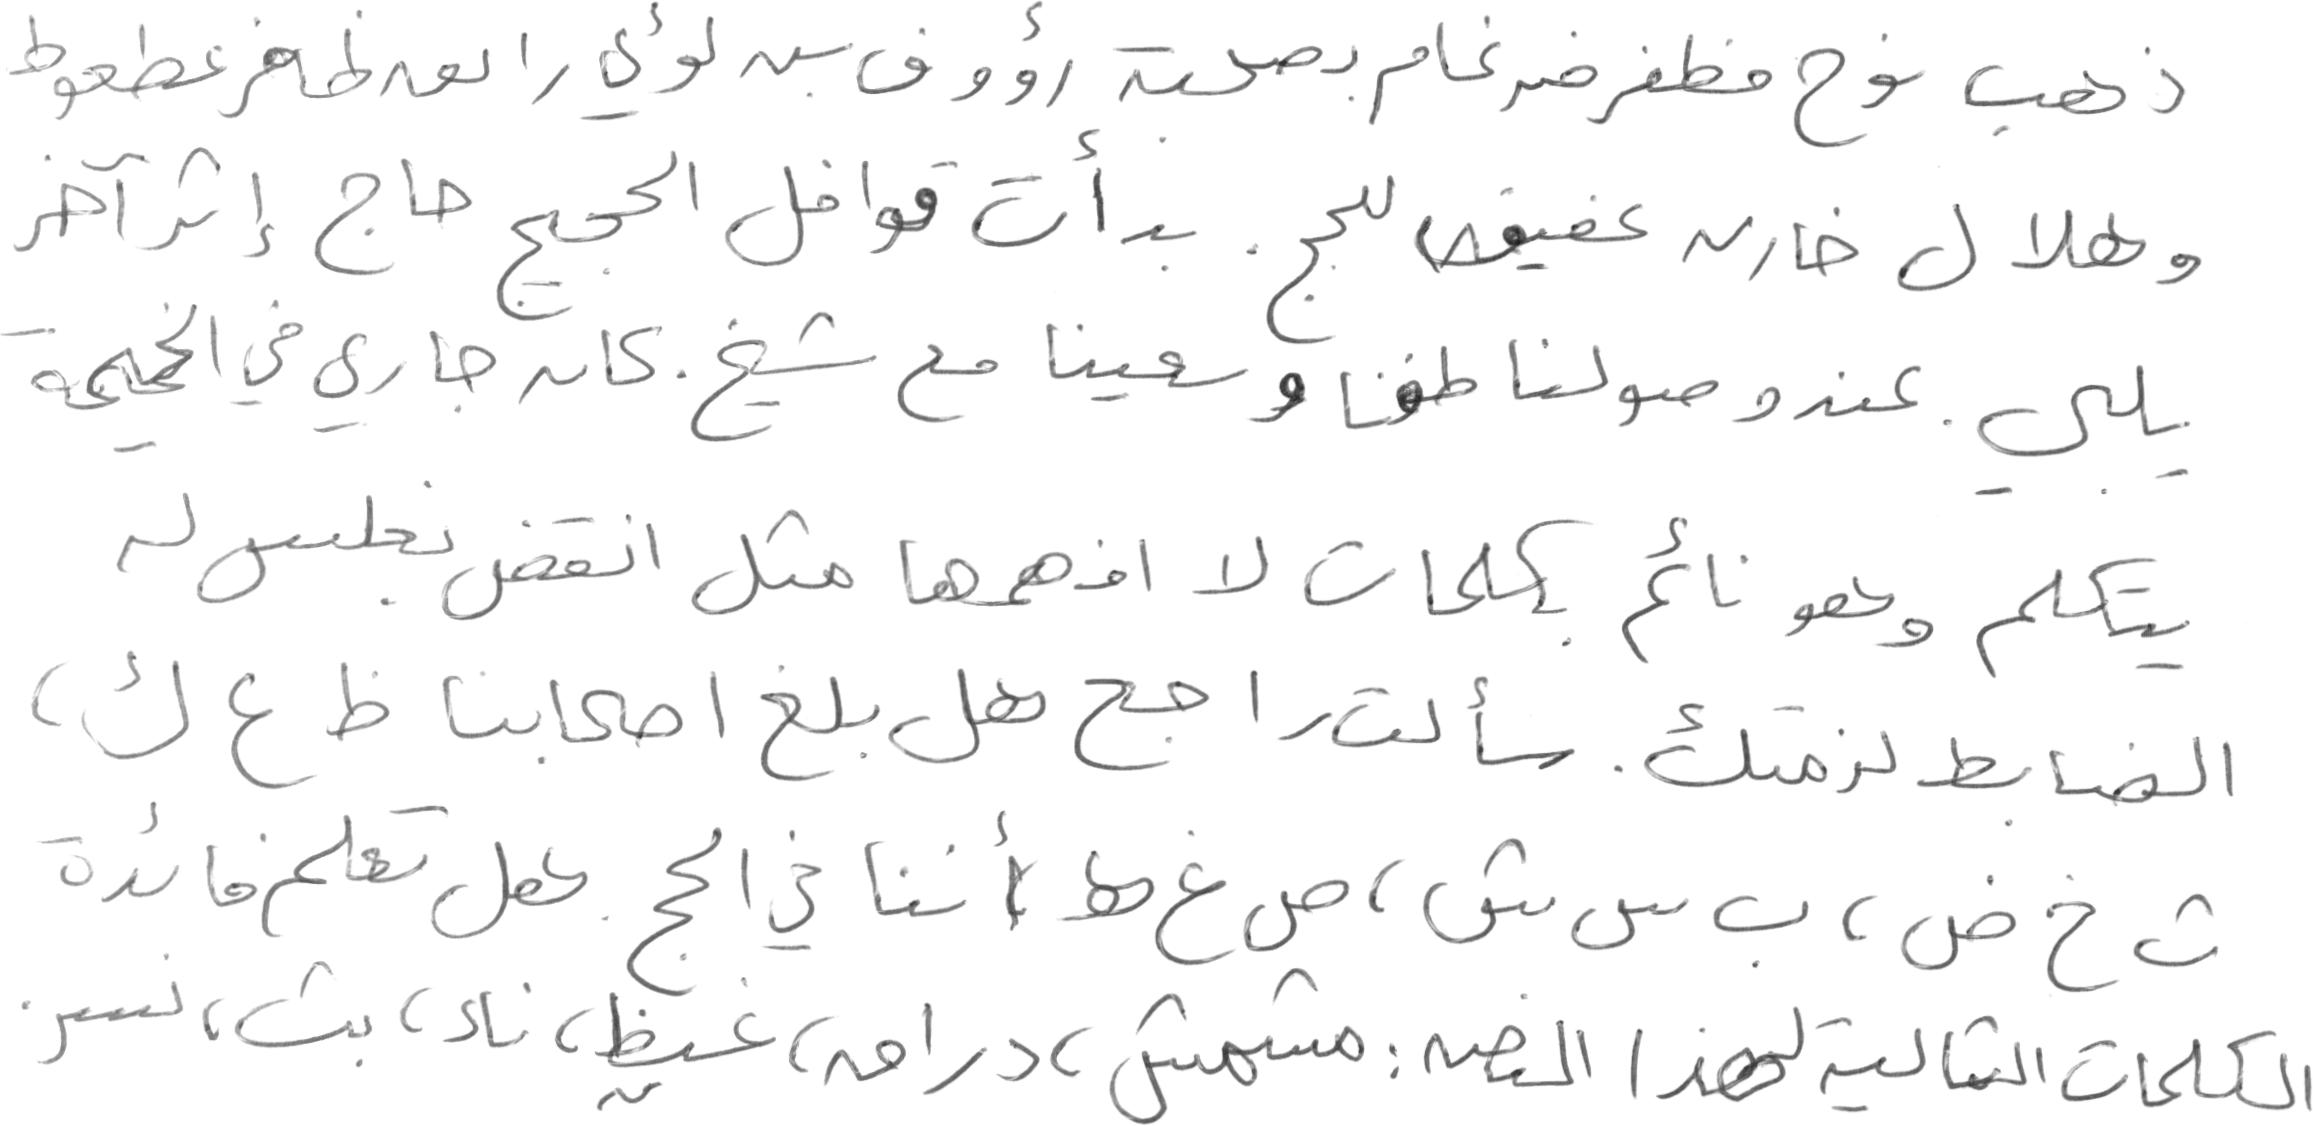 ذهب نوح مظفر ضرغام بصحبة رؤوف بن لؤي راجح ظافر غطعوط
وهلال خازن عفيفي للحج. بدأت قوافل الحجيج حاج إثر آخر
يلبي. عند وصولنا طفنا وسعينا مع شيخ. كان جاري في الخيمة
يتكلم وهو نائم بكلمات لا افهمها مثل انقض بجلس له
الضابط لزمتك. سألت راجح هل بلغ اصحابنا ظ ع ك،
ث خ ض، ب س ش، ص غ ه أننا في الحج. هل تعلم فائدة
الكلمات التالية لهذا النص: مشمش، دراهم، غيظ، ناد، بث، نسر.